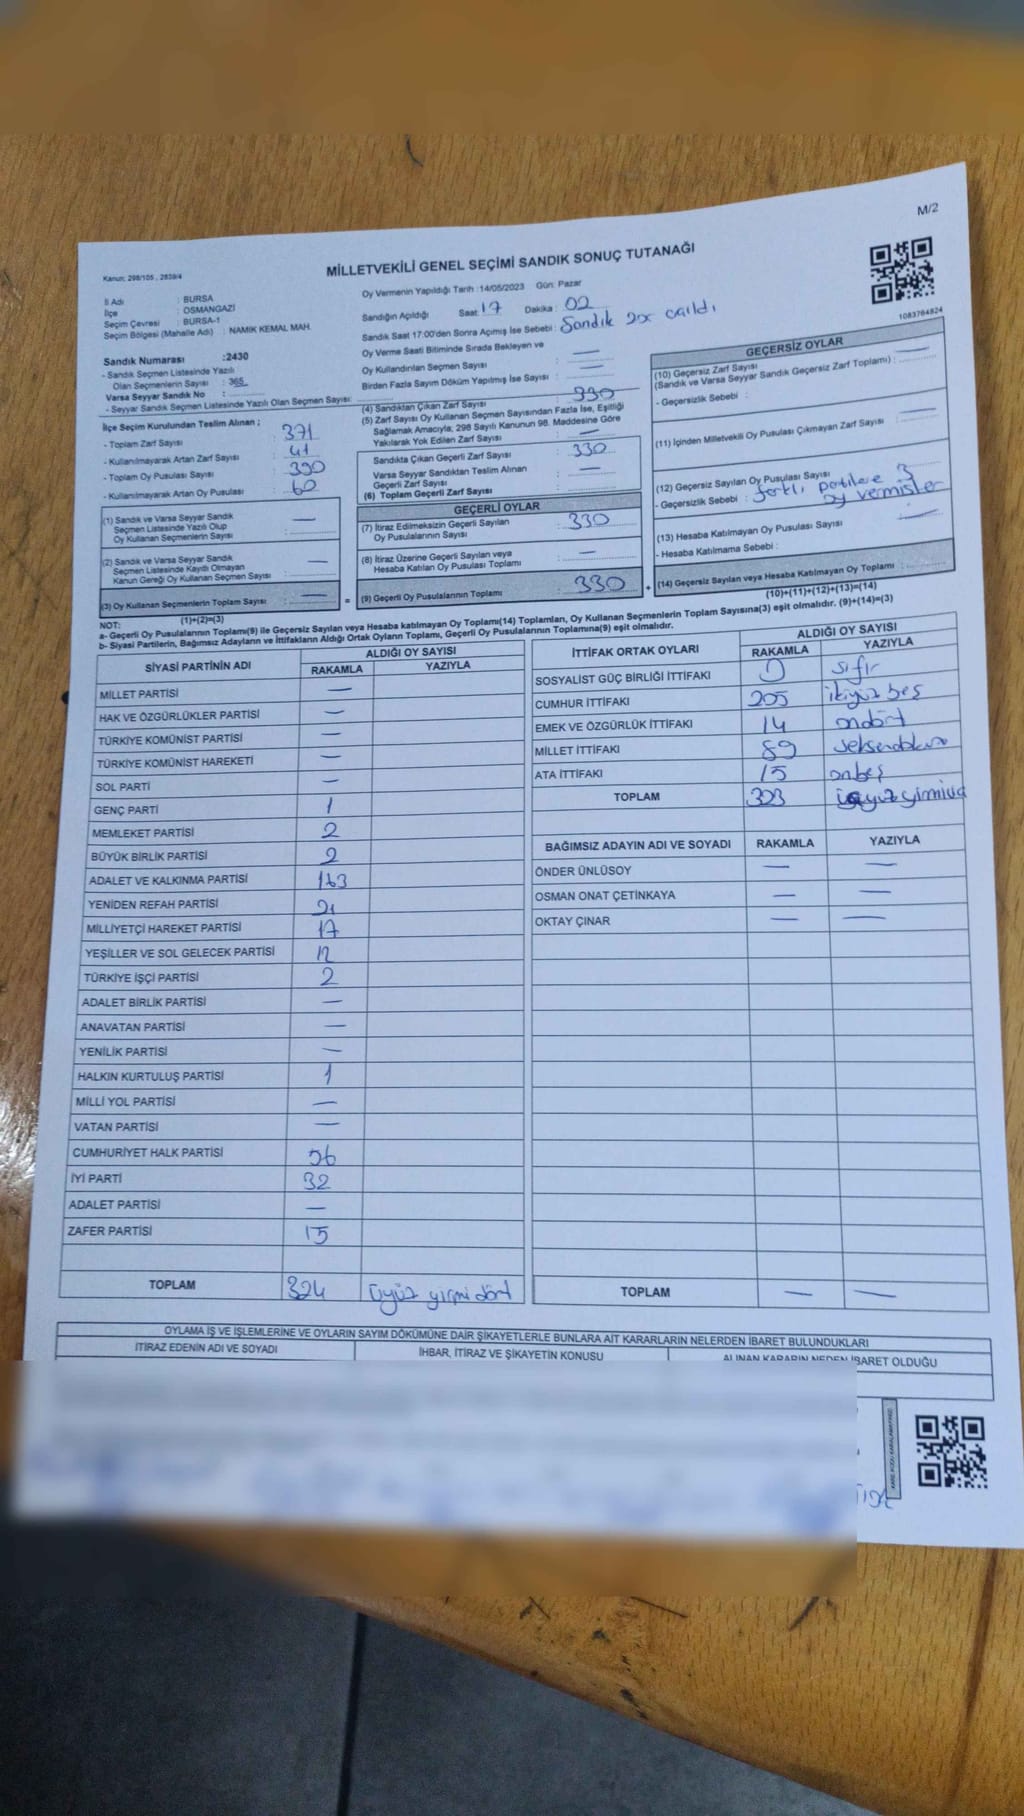 M/2
Kanun: 298/105 , 2839/4
MİLLETVEKİLİ GENEL SEÇİMİ SANDIK SONUÇ TUTANAĞI
İl Adı : BURSA
İlçe : OSMANGAZİ
Seçim Çevresi : BURSA-1
Seçim Bölgesi (Mahalle Adı) : NAMIK KEMAL MAH.
Sandık Numarası :2430
- Sandık Seçmen Listesinde Yazılı
Olan Seçmenlerin Sayısı : 365
Varsa Seyyar Sandık No :
- Seyyar Sandık Seçmen Listesinde Yazılı Olan Seçmen Sayısı:
İlçe Seçim Kurulundan Teslim Alınan ;
- Toplam Zarf Sayısı : 371
- Kullanılmayarak Artan Zarf Sayısı : 41
- Toplam Oy Pusulası Sayısı : 390
- Kullanılmayarak Artan Oy Pusulası : 60
(1) Sandık ve Varsa Seyyar Sandık
Seçmen Listesinde Yazılı Olup
Oy Kullanan Seçmenlerin Sayısı : —
(2) Sandık ve Varsa Seyyar Sandık
Seçmen Listesinde Kayıtlı Olmayan
Kanun Gereği Oy Kullanan Seçmen Sayısı : —
(3) Oy Kullanan Seçmenlerin Toplam Sayısı : —
(1)+(2)=(3)
Oy Vermenin Yapıldığı Tarih :14/05/2023 Gün: Pazar
Sandığın Açıldığı Saat: 17 Dakika : 02
Sandık Saat 17:00'den Sonra Açımış İse Sebebi : Sandık
Oy Verme Saati Bitiminde Sırada Bekleyen ve
Oy Kullandırılan Seçmen Sayısı : —
Birden Fazla Sayım Döküm Yapılmış İse Sayısı : —
(4) Sandıktan Çıkan Zarf Sayısı : 330
(5) Zarf Sayısı Oy Kullanan Seçmen Sayısından Fazla İse, Eşitliği
Sağlamak Amacıyla, 298 Sayılı Kanunun 98. Maddesine Göre
Yakılarak Yok Edilen Zarf Sayısı : —
Sandıkta Çıkan Geçerli Zarf Sayısı : 330
Varsa Seyyar Sandıktan Teslim Alınan
Geçerli Zarf Sayısı : —
(6) Toplam Geçerli Zarf Sayısı
GEÇERLİ OYLAR
(7) İtiraz Edilmeksizin Geçerli Sayılan
Oy Pusulalarının Sayısı : 330
(8) İtiraz Üzerine Geçerli Sayılan veya
Hesaba Katılan Oy Pusulası Toplamı : —
= (9) Geçerli Oy Pusulalarının Toplamı : 330 +
1083764824
GEÇERSİZ OYLAR
(10) Geçersiz Zarf Sayısı
(Sandık ve Varsa Seyyar Sandık Geçersiz Zarf Toplamı) : —
- Geçersizlik Sebebi :
(11) İçinden Milletvekili Oy Pusulası Çıkmayan Zarf Sayısı : —
(12) Geçersiz Sayılan Oy Pusulası Sayısı : 3
- Geçersizlik Sebebi : farklı partilere oy vermişler
(13) Hesaba Katılmayan Oy Pusulası Sayısı : —
- Hesaba Katılmama Sebebi :
(14) Geçersiz Sayılan veya Hesaba Katılmayan Oy Toplamı :
(10)+(11)+(12)+(13)=(14)
NOT:
a- Geçerli Oy Pusulalarının Toplamı(9) ile Geçersiz Sayılan veya Hesaba katılmayan Oy Toplamı(14) Toplamları, Oy Kullanan Seçmenlerin Toplam Sayısına(3) eşit olmalıdır. (9)+(14)=(3)
b- Siyasi Partilerin, Bağımsız Adayların ve İttifakların Aldığı Ortak Oyların Toplamı, Geçerli Oy Pusulalarının Toplamına(9) eşit olmalıdır.
SİYASİ PARTİNİN ADI ALDIĞI OY SAYISI
RAKAMLA YAZIYLA
MİLLET PARTİSİ —
HAK VE ÖZGÜRLÜKLER PARTİSİ —
TÜRKİYE KOMÜNİST PARTİSİ —
TÜRKİYE KOMÜNİST HAREKETİ —
SOL PARTİ —
GENÇ PARTİ 1
MEMLEKET PARTİSİ 2
BÜYÜK BİRLİK PARTİSİ 2
ADALET VE KALKINMA PARTİSİ 163
YENİDEN REFAH PARTİSİ 21
MİLLİYETÇİ HAREKET PARTİSİ 17
YEŞİLLER VE SOL GELECEK PARTİSİ 12
TÜRKİYE İŞÇİ PARTİSİ 2
ADALET BİRLİK PARTİSİ —
ANAVATAN PARTİSİ —
YENİLİK PARTİSİ —
HALKIN KURTULUŞ PARTİSİ 1
MİLLİ YOL PARTİSİ —
VATAN PARTİSİ —
CUMHURİYET HALK PARTİSİ 56
İYİ PARTİ 32
ADALET PARTİSİ —
ZAFER PARTİSİ 15
TOPLAM 324 üçyüz yirmi dört
İTTİFAK ORTAK OYLARI ALDIĞI OY SAYISI
RAKAMLA YAZIYLA
SOSYALİST GÜÇ BİRLİĞİ İTTİFAKI 0 sıfır
CUMHUR İTTİFAKI 205 ikiyüz beş
EMEK VE ÖZGÜRLÜK İTTİFAKI 14 ondört
MİLLET İTTİFAKI 89 seksendokuz
ATA İTTİFAKI 15 onbeş
TOPLAM 323 üçyüzyirmiüç
BAĞIMSIZ ADAYIN ADI VE SOYADI RAKAMLA YAZIYLA
ÖNDER ÜNLÜSOY — —
OSMAN ONAT ÇETİNKAYA — —
OKTAY ÇINAR — —
TOPLAM — —
OYLAMA İŞ VE İŞLEMLERİNE VE OYLARIN SAYIM DÖKÜMÜNE DAİR ŞİKAYETLERLE BUNLARA AİT KARARLARIN NELERDEN İBARET BULUNDUKLARI
İTİRAZ EDENİN ADI VE SOYADI İHBAR, İTİRAZ VE ŞİKAYETİN KONUSU ALINAN KARARIN NEDEN İBARET OLDUĞU